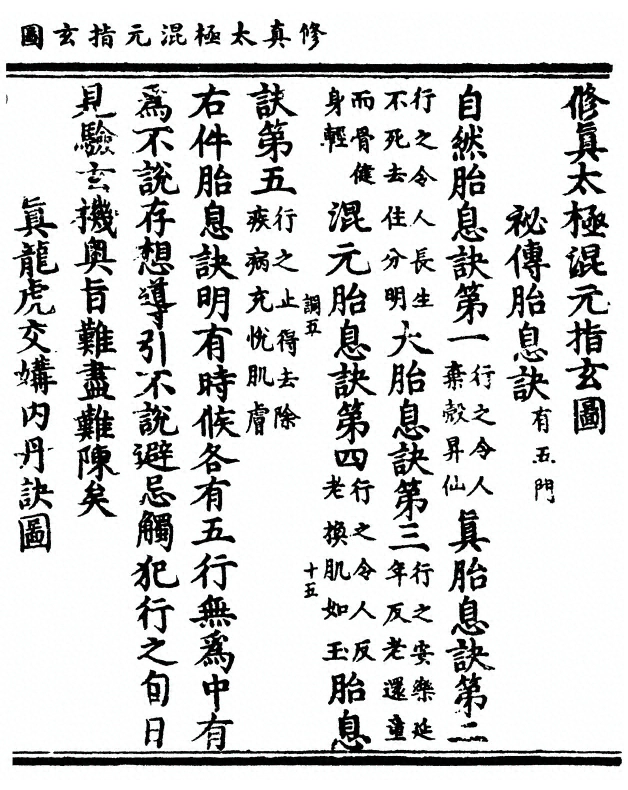 修真太極混元指玄圖
修眞太極混元指玄圖
祕傳胎息訣有五門
自然胎息訣第一行之令人棄殼昇仙眞胎息訣第二
行之令人長生不死去住分明大胎息訣第三行之安樂延年反老還童
而骨健身輕混元胎息訣第四行之令人反老換肌如玉胎息
調五 十五
訣第五行之止得去除疾病充悅肌膚
右件胎息訣明有時候各有五行無爲中有
爲不說存想導引不說避忌觸犯行之旬日
見驗玄機奧旨難盡難陳矣
眞龍虎交媾內丹訣圖